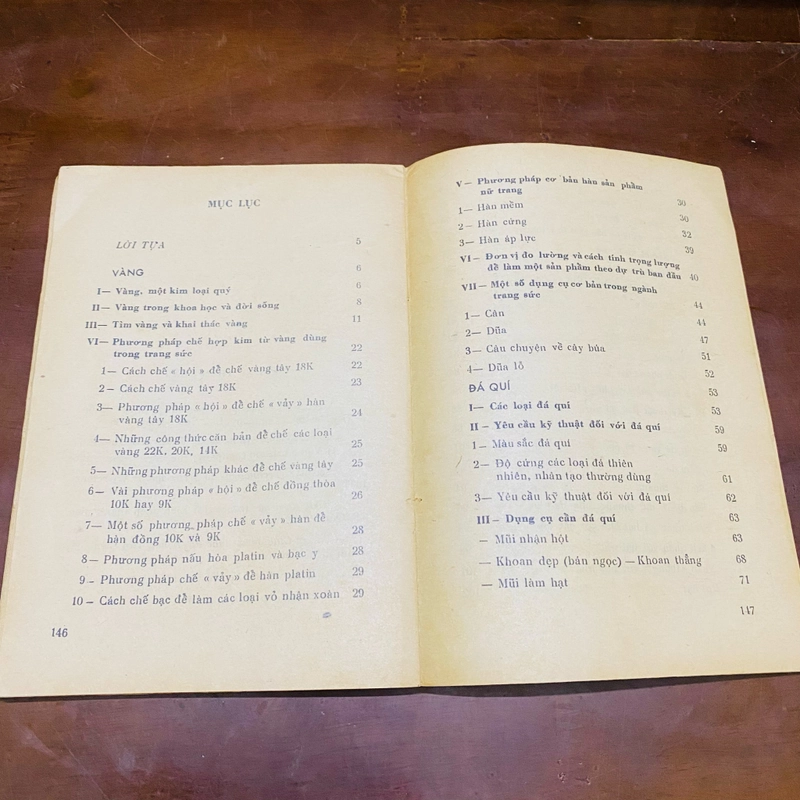 MỤC LỤC
LỜI TỰA 5
VÀNG 6
I— Vàng, một kim loại quý 6
II— Vàng trong khoa học và đời sống 8
III— Tìm vàng và khai thác vàng 11
VI— Phương pháp chế hợp kim từ vàng dùng
trong trang sức 22
1— Cách chế «hội» để chế vàng tây 18K 22
2— Cách chế vàng tây 18K 23
3— Phương pháp «hội» để chế «vảy» hàn
vàng tây 18K 24
4— Những công thức căn bản để chế các loại
vàng 22K, 20K, 14K 25
5— Những phương pháp khác để chế vàng tây 25
6— Vài phương pháp «hội» để chế đồng thòa
10K hay 9K 26
7— Một số phương pháp chế «vảy» hàn để
hàn đồng 10K và 9K 28
8— Phương pháp nấu hòa platin và bạc y 28
9— Phương pháp chế «vảy» để hàn platin 29
10— Cách chế bạc để làm các loại vỏ nhận xoàn 29
146
V— Phương pháp cơ bản hàn sản phẩm
nữ trang 30
1— Hàn mềm 30
2— Hàn cứng 32
3— Hàn áp lực 39
VI— Đơn vị đo lường và cách tính trọng lượng
để làm một sản phẩm theo dự trù ban đầu 40
VII— Một số dụng cụ cơ bản trong ngành
trang sức 44
1— Cân 44
2— Dũa 47
3— Câu chuyện về cây búa 51
4— Dũa lỗ 52
ĐÁ QUÍ 53
I— Các loại đá quí 53
II— Yêu cầu kỹ thuật đối với đá quí 59
1— Màu sắc đá quí 59
2— Độ cứng các loại đá thiên
nhiên, nhân tạo thường dùng 61
3— Yêu cầu kỹ thuật đối với đá quí 62
III— Dụng cụ cẩn đá quí 63
— Mũi nhận hột 63
— Khoan dẹp (bán ngọc) — Khoan thẳng 68
— Mũi làm hạt 71
147